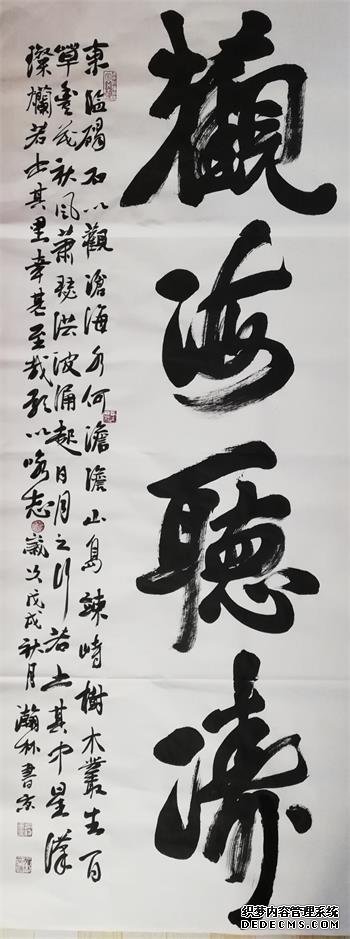 觀海聽濤
東臨碣石以觀滄海水何澹澹山島竦峙樹木叢生百
草豐茂秋風蕭瑟洪波涌起日月之行若出其中星漢
璨爛若出其里幸甚至哉歌以咏志歲次戊戌秋月瀚林書京
织梦内容管理系统
DEDECMS.COM